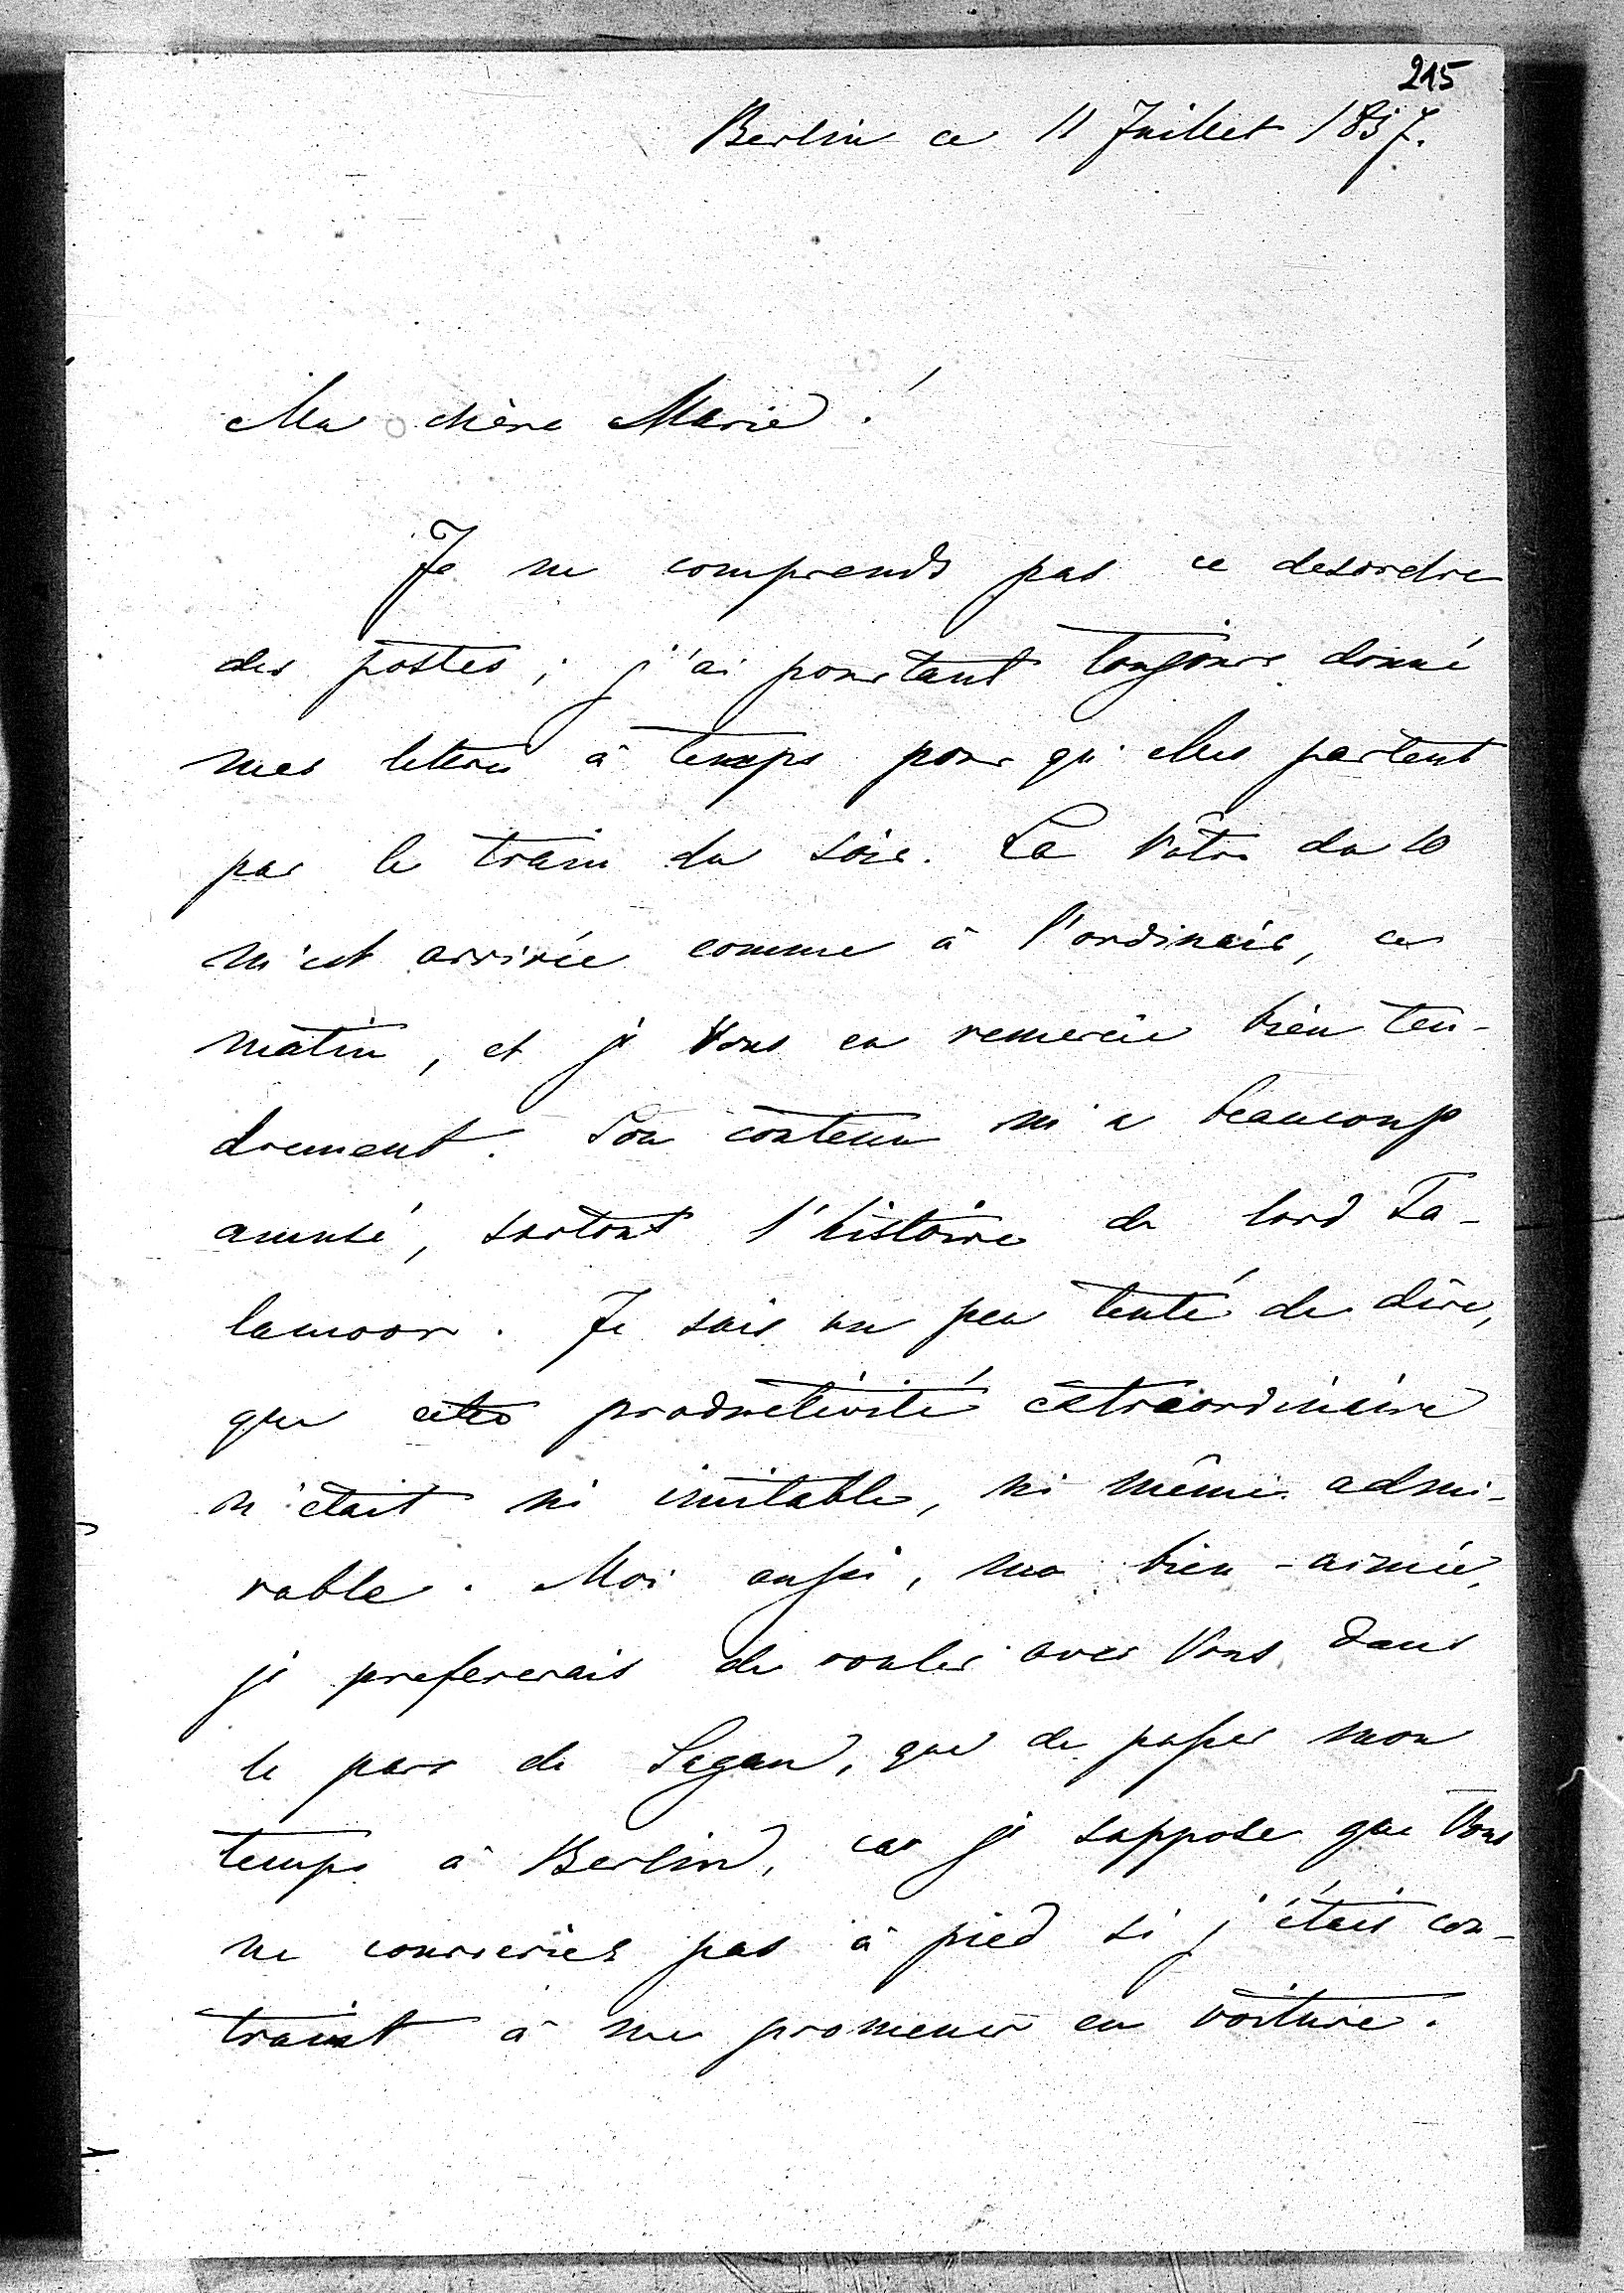 215
Berlin ce 11 Juillet 1857.
Ma chère Marie!
Je ne comprends pas ce desordre
des postes; j'ai pourtant toujours donné
mes lettres à temps pour qu'elles partent
par le train du soir. La Vôtre du 10
m'est arrivée comme à l'ordinaire, ce
matin, et je Vous en remercie bien ten-
drement. Son contenu m'a beaucoup
amusé, surtout l'histoire de lord
lamoor. Je suis un peu tenté de dire,
que cette productivité extraordinaire
n'était ni imitable, ni même admi-
rable. Moi aussi, ma bien-aimée,
je prefererais de rouler avec Vous dans
le parc de Sagan, que de passer mon
temps à Berlin, car je suppose que Vous
ne courreriez pas à pied si j'étais con-
traint à me promener en voiture.